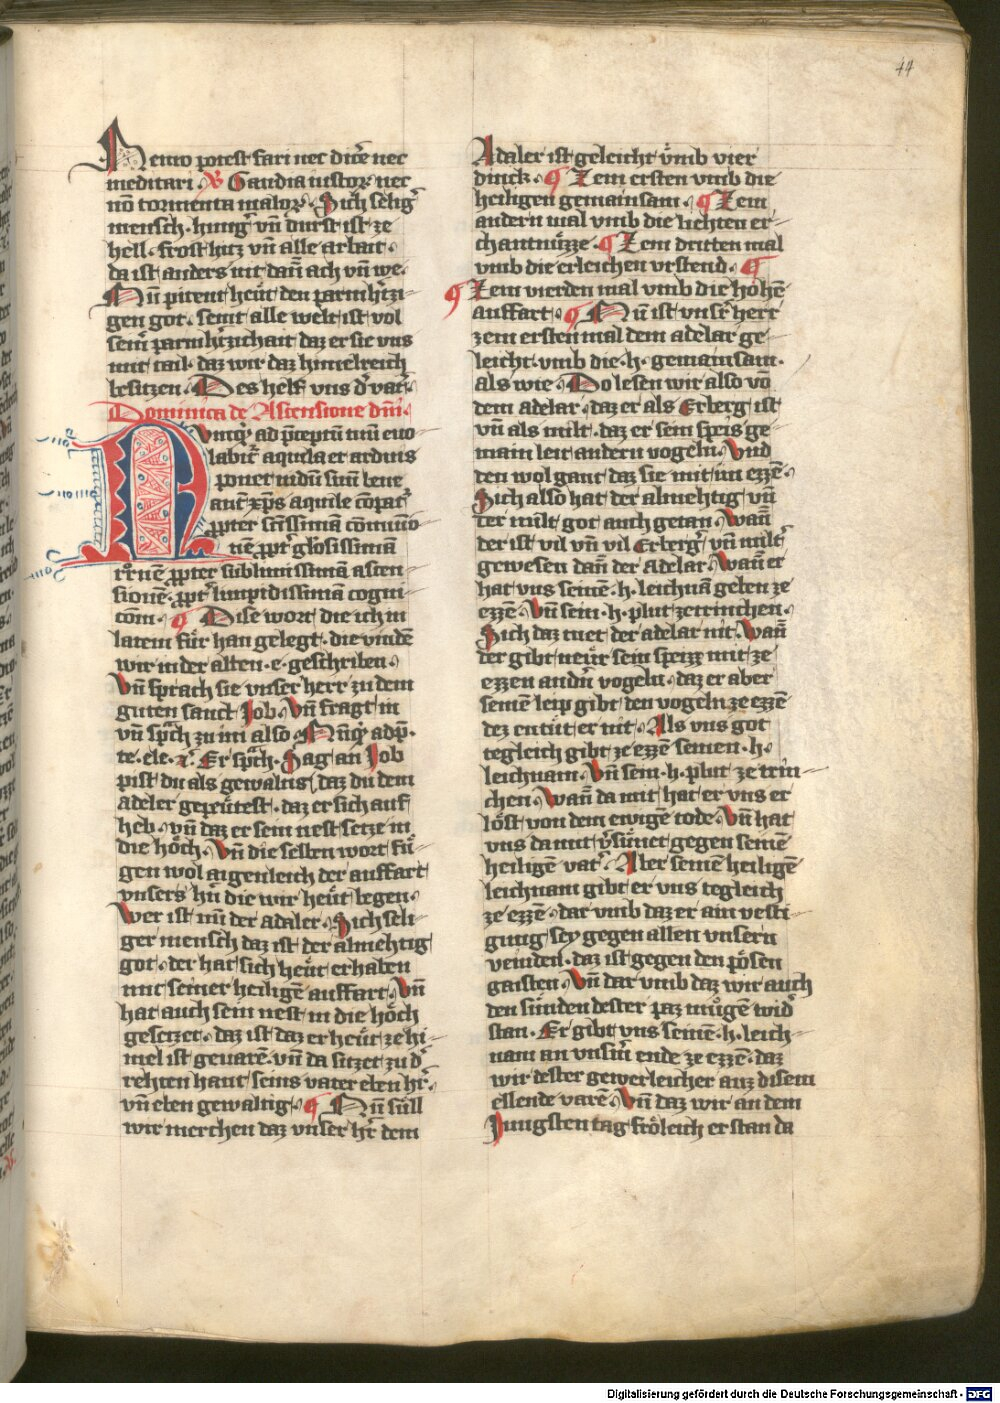 44
Nemo potest fari nec dice᷑ nec
meditari. V Gaudia iustoꝝ nec
nō tormenta maloꝝ. Sich selig᷑
mensch. hung᷑ vn̄ durst ist ze
hell. frost hitz vn̄ alle arbait.
da ist anders nit dan̄ ach vn̄ we.
Nu᷑ pitent heu᷑t den parmh᷑tzi-
gen got. seint alle welt ist vol
sein᷑ parmh᷑tzichait daz er sie vns
mit tail. daz wir daz himelreich
besitzen. Des helf vns d᷑ vat᷑.
Dominica de Ascensione dn̄i.
Numq̄ ad p̄ceptū tuū euo
labit᷑ aquila et arduis
ponet nidū suū bene
aut᷑ xp̄s aquile cōpat᷑
ꝓpter sc̄issimā cōmuio-
nē ꝓpt᷑ gl̄osissimā
rr᷑nē ꝓpter sublimissimā ascen-
sionē. ꝓpt᷑ limpidissimā cogni-
cōm. Dise wort die ich in
latein fu᷑r han gelegt. die vindē
wir in der alten. e. geschriben.
Vn̄ sprach sie vnser herr zu dem
guten sanct Job. Vn̄ fragt in
vn̄ sp᷑ch zu im also. Nu̅q̄ ad p̄-
te. ele. ⁊c. Er sp᷑ch. Sag an Job
pist du als gewaltig daz du dem
adeler gepeu᷑test. daz er sich auf
heb. vn̄ daz er sein nest setze in
die ho᷑ch. Vn̄ die selben wort fu᷑-
gen wol aigenleich der auffart
vnsers hn̄ die wir heu᷑t legen.
Wer ist nu᷑ der adaler. Sich seli-
ger mensch daz ist der almehtig
got. der hat sich heu᷑t erhaben
mit seiner heiligē auffart. Vn̄
hat auch sein nest in die ho᷑ch
gesetzet. daz ist daz er heu᷑t ze hi-
mel ist geuarē. vn̄ da sitzet zu d᷑
rehten hant seins vater eben h᷑r.
vn̄ eben gewaltig. Nu᷑ su᷑ll
wir merchen daz vnser h᷑r dem
Adaler ist geleicht v᷑mb vier
dinck. Zem ersten vmb die
heiligen gemainsam. Zem
andern mal vmb die liehten er-
chantnu᷑zze. Zem dritten mal
vmb die erleichen vrstend.
Zem vierden mal vmb die hohē
auffart. Nu᷑ ist vns᷑ herr
zem ersten mal dem adelar ge-
leicht. vmb die. h. gemainsam.
als wie. Do lesen wir also vō
dem adelar. daz er als Erberg ist
vn̄ als milt. daz er sein speis ge-
main leit andern vogeln. Vnd
den wol gant daz sie mit im ezzē.
Sich also hat der almehtig vn̄
der milt got auch getan. Wan̄
der ist vil vn̄ vil Erberg᷑ vn̄ milt᷑
gewesen dan̄ der Adelar. Wan̄ er
hat vns seinē. h. leichnā geben ze
ezzē. Vn̄ sein. h. plut ze trinchen.
Sich daz tuet der adelar nit. Wan̄
der gibt neu᷑r sein speizz mit ze
ezzen and᷑n vogeln. daz er aber
seinē leip gibt den vogeln ze ezzē
dez entu᷑t er nit. Als vns got
tegleich gibt ze ezzē seinen. h.
leichnam. Vn̄ sein. h. plut ze trin-
chen. Wan̄ da mit hat er vns er
lo᷑st von dem ewigē tode. Vn̄ hat
vns da mit v᷑su᷑net gegen seinē
heiligē vat᷑. Aber seinē heiligē
leichnam gibt er vns tegleich
ze ezzē. dar vmb daz er ain vesti-
gung sey gegen allen vnsern
veinden. daz ist gegen den po᷑sen
gaisten. Vn̄ dar vmb daz wir auch
den su᷑nden dester paz mu᷑gē wid᷑
stan. Er gibt vns seinē. h. leich-
nam an vns᷑m ende ze ezzē. daz
wir dester gewerleicher auz disem
ellende varē. Vn̄ daz wir an dem
Jungsten tag fro᷑leich er stan da
Digitalisierung gefördert durch die Deutsche Forschungsgemeinschaft - DFG